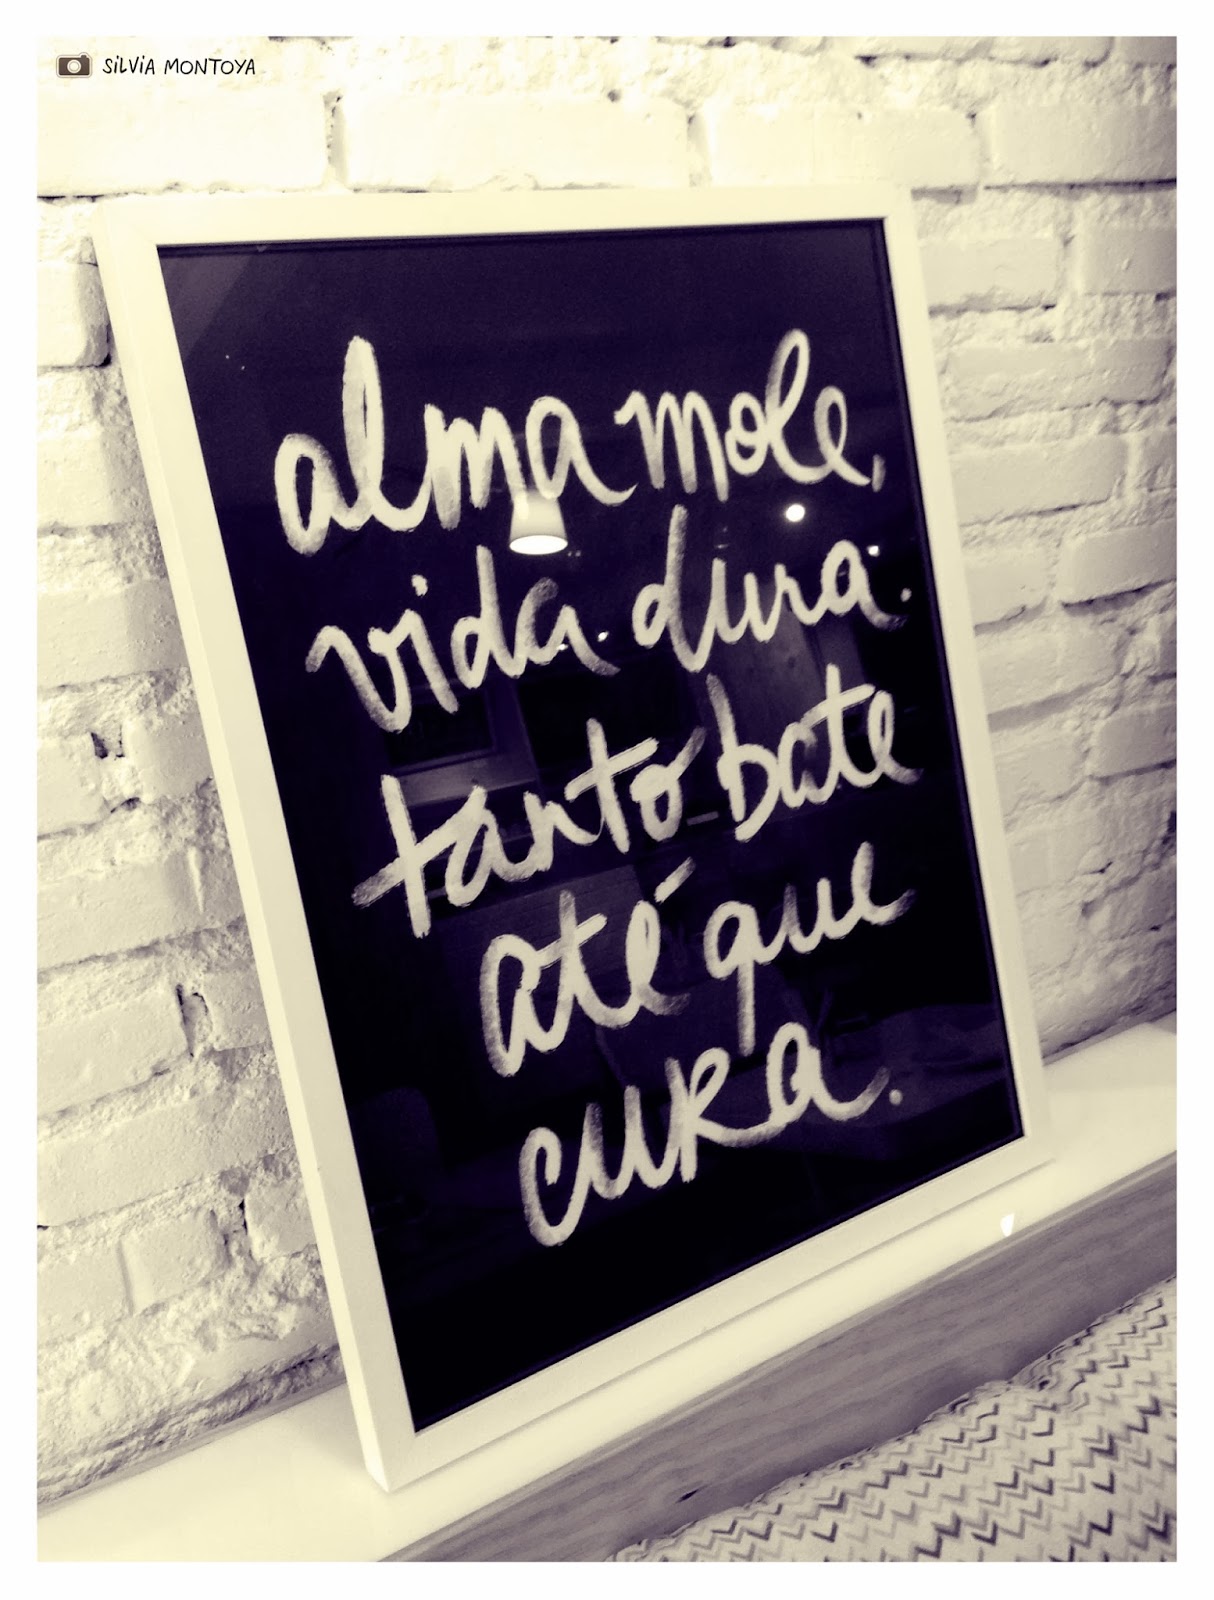 SILVIA MONTOYA
alma mole,
vida dura.
tanto bate
até que
cura.